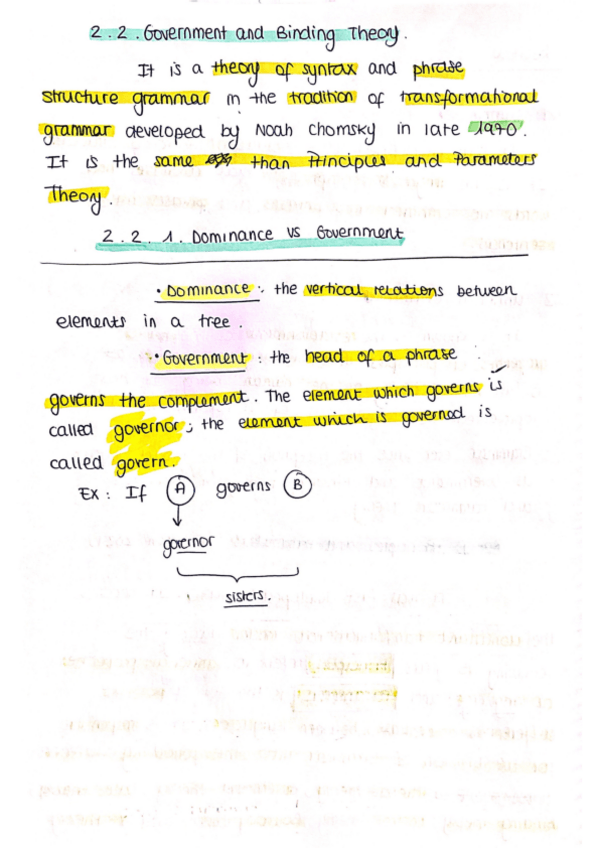 2.2. Government and Binding Theory.
It is a theory of syntax and phrase
structure grammar in the tradition of transformational
grammar developed by Noah Chomsky in late 1970.
It is the same than Principles and Parameters
Theory.
2.2.1. Dominance vs Government
• Dominance: the vertical relations between
elements in a tree.
• Government: the head of a phrase
governs the complement. The element which governs is
called governor; the element which is governed is
called govern.
Ex: If A governs B
governor
sisters.